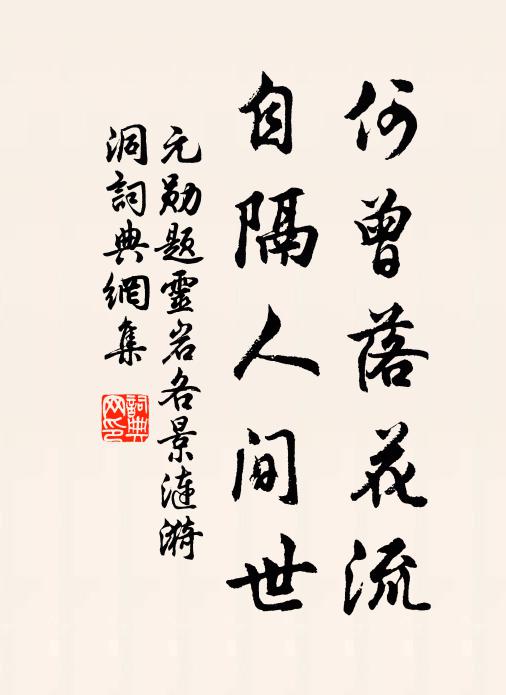 何曾落花流
自隔人间世
元勋题靈岩各景漣漪
洞詞典網集
詞典网印